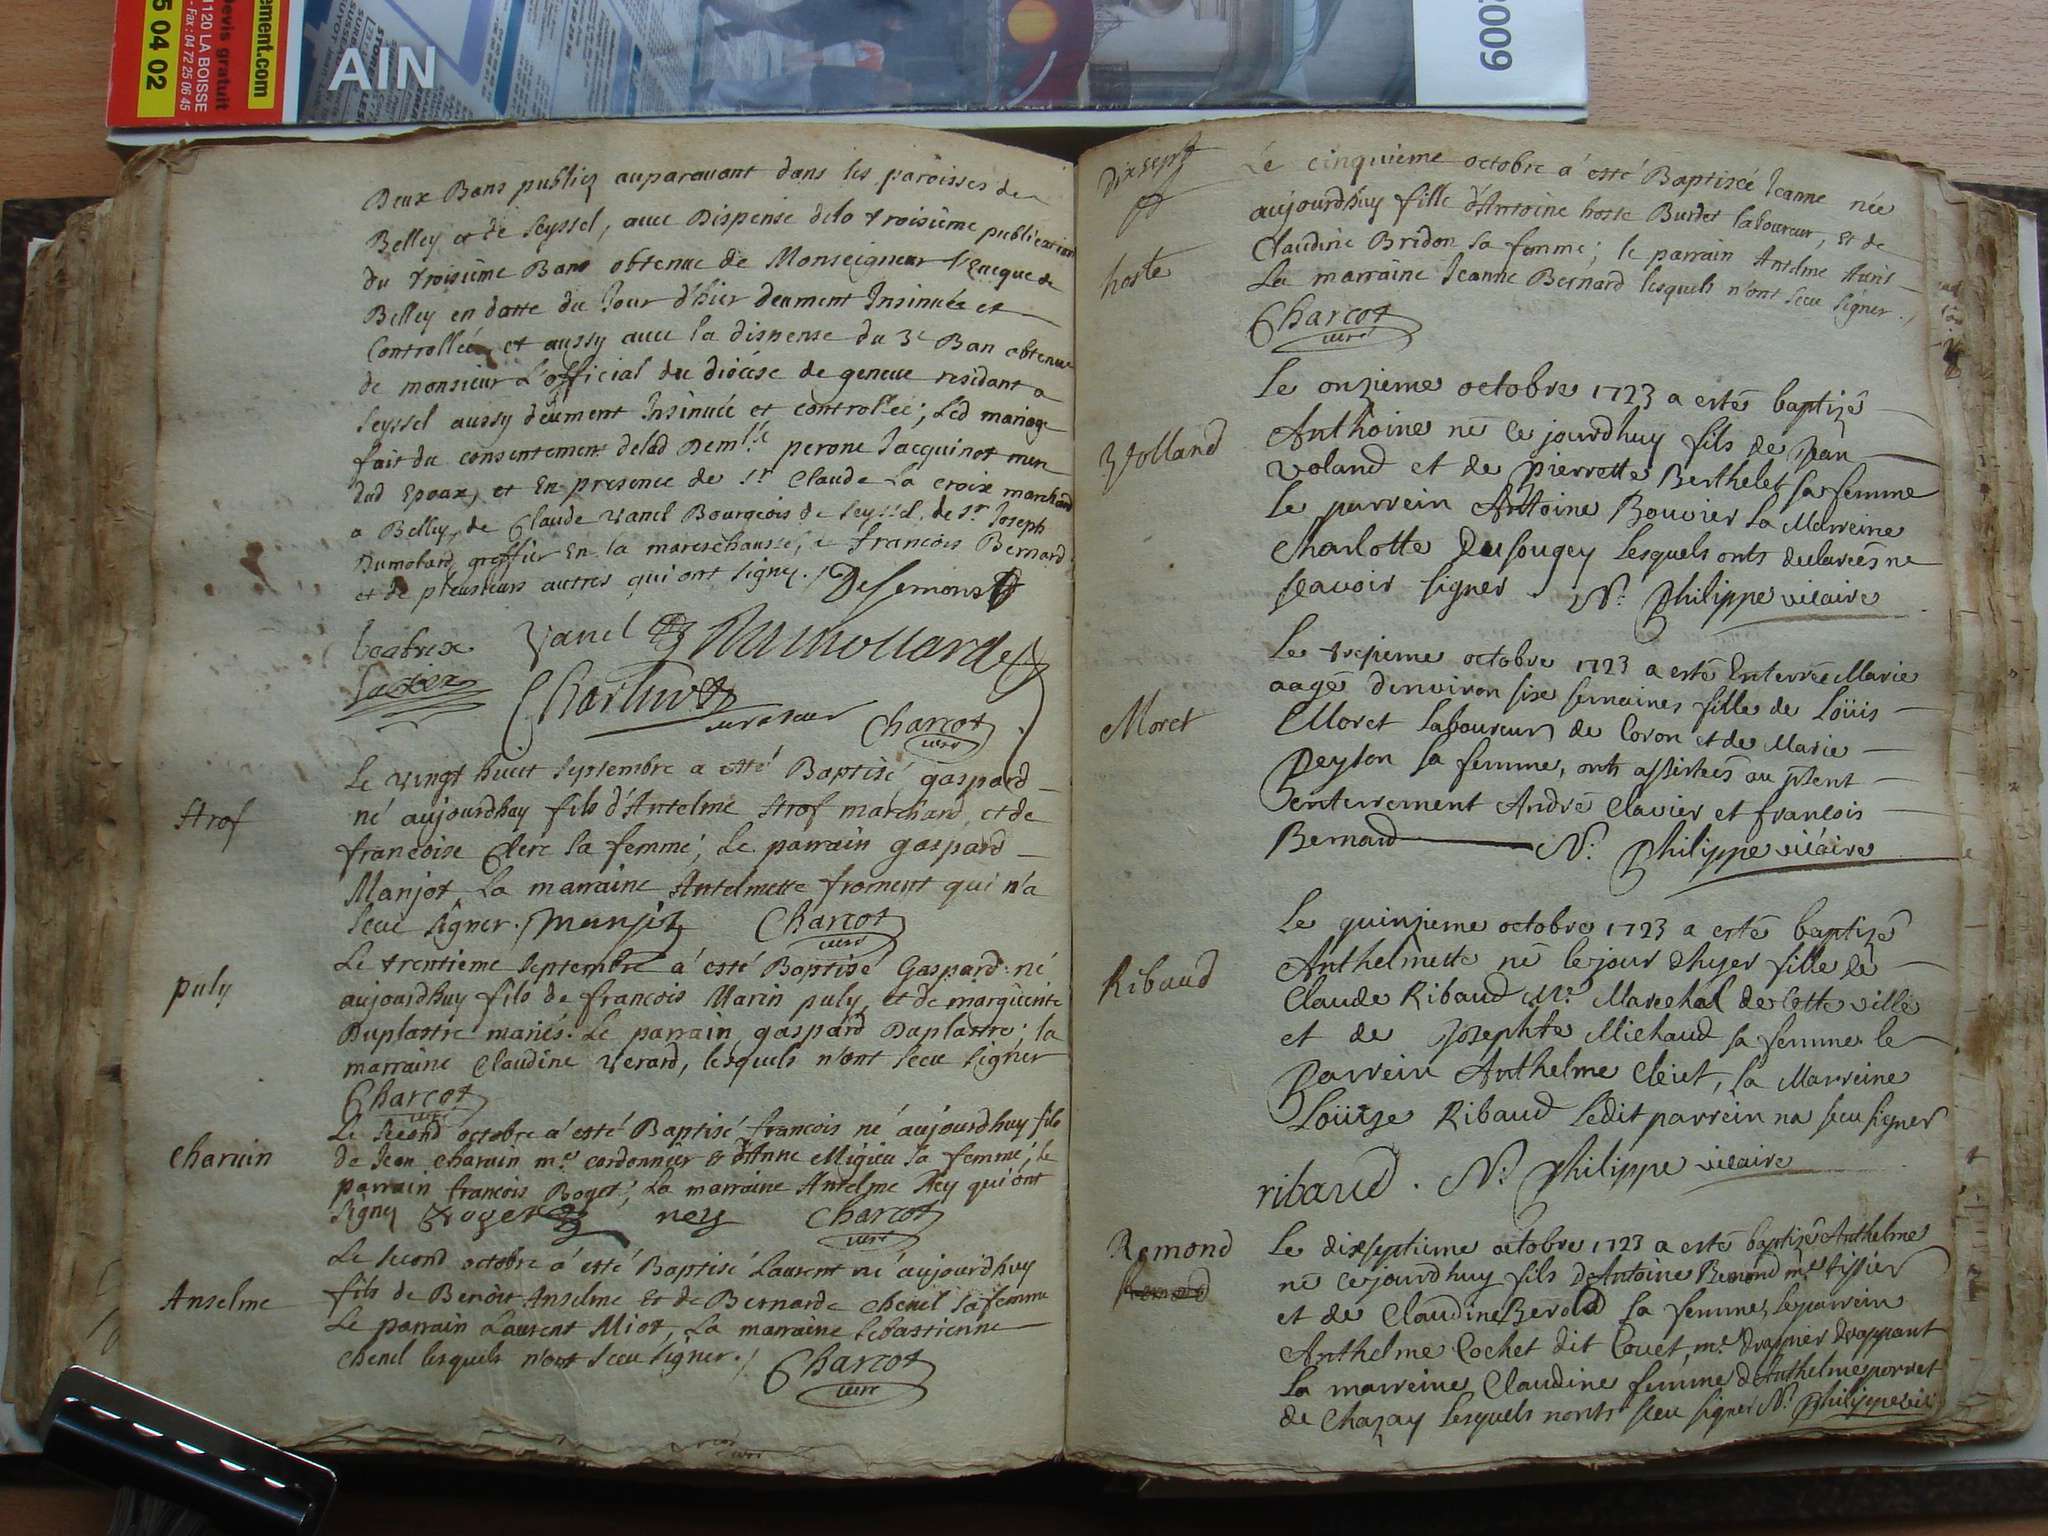 ement.com
Devis gratuit
1120 LA BOISSE
Fax : 04 72 25 06 45
5 04 02
AIN
2009
Deux Bans publiez auparavant dans les paroisses de
Belley et de Seyssel, avec Dispense dela troisieme publication
du troisième Bans obtenue de Monseigneur l'Eveque de
Belley en datte du Jour d'hier deument Insinuée et
Controllée, et aussy avec la dispense du 3e Ban obtenue
de monsieur L'official du diocése de geneve residant a
Seyssel aussy deument Insinuée et controllée; Led mariage
fait du consentement delad Demlle perone Jacquinot mere
dud Epoux, et En presence de Sr Claude La croix marchand
a Belley, de Claude Vanel Bourgeois de Seyssel, de Sr Joseph
Dumolard greffier En la mareschaussée, & francois Bernard
et de plusieurs autres qui ont signez. Desemons
beatrix Vanel Dumollard
Charcot
vere
Strof
Le vingt huict septembre a esté Baptisé gaspard
né aujourdhuy fils d'Antelme Strof marchand, et de
francoise Clerc sa femme, Le parrain gaspard
Manjot La marraine Antelmette froment qui n'a
sceu signer. manjot Charcot
vere
puly
Le trentieme septembre á esté Baptisé Gaspard né
aujourdhuy fils de francois Marin puly, et de marguerite
Duplastre mariés. Le parrain gaspard Duplastre: la
marraine Claudine Verard, lesquels n'ont sceu signer
Charcot
vere
Charvin
Le second octobre á esté Baptisé francois né aujourdhuy fils
de Jean Charvin me cordonnier & d'Anne Migieu sa femme, le
parrain francois Roget, La marraine Antelme Ney qui ont
signez Roget ney Charcot
vere
Anselme
Le second octobre á esté Baptisé Laurent né aujourdhuy
fils de Benoit Anselme Et de Bernarde Chenel sa femme
Le parrain Laurent Miot, La marraine Sebastienne
Chenel lesquels n'ont sceu signer. Charcot
vere
Dix sept
hoste
Le cinquieme octobre á esté Baptisée Jeanne née
aujourdhuy fille d'Antoine hoste Burdet laboureur, Et de
Claudine Bridon sa femme; le parrain Antelme
La marraine Jeanne Bernard lesquels n'ont sceu signer.
Charcot
vere
Volland
Le onzieme octobre 1723 a esté baptizé
Anthoine né ce jourdhuy fils de Jean
Voland et de pierrette Berthelet sa femme
Le parrein Antoine Bouvier la Marreine
Charlotte Dusougey lesquels onts declarés ne
scavoir signer. N. Philippe vicaire
Moret
Le treizieme octobre 1723 a esté Enterrée Marie
aagé denviron six semaines fille de Loüis
Moret laboureur de Coron et de Marie
Peyson sa femme, onts assistés au pnt
enterrement André Clavier et francois
Bernard N. Philippe vicaire
Ribaud
Le quinzieme octobre 1723 a esté baptizé
Anthelmette né le jour dhyer fille de
Claude Ribaud Me Marechal de Cette ville
et de Josephte Michaud sa femme le
Parrein Anthelme Cleict, la Marreine
Loüize Ribaud Ledit parrein na sceu signer
ribaud. N. Philippe vicaire
Remond
Le dixseptieme octobre 1723 a esté baptizé Anthelme
né cejourdhuy fils D'Antoine Remond me tissier
et de Claudine Berold sa femme, le parrein
Anthelme Cochet dit Couet, me drapier drappant
La marreine Claudine femme D'Anthelme porret
de Chazay lesquels nonts sceu signer N. Philippe vic